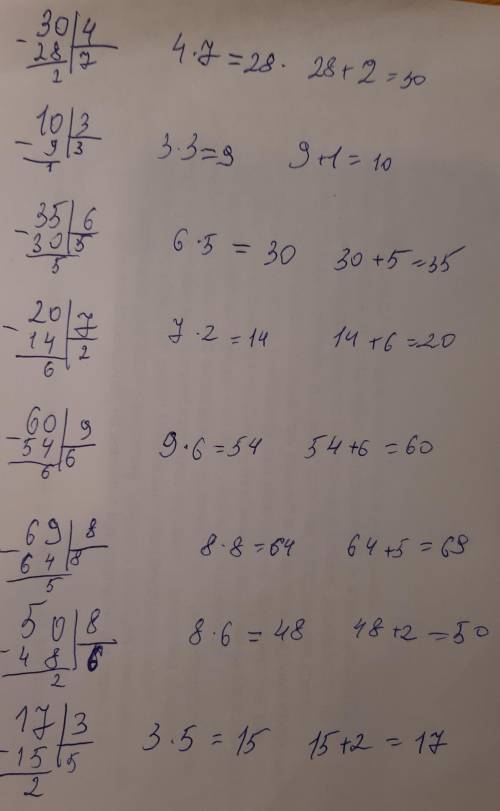 30 4
- 28 7 4·7=28. 28+2=30
2
10 3
- 9 3 3·3=9 9+1=10
1
35 6
- 30 5 6·5=30 30+5=35
5
20 7
- 14 2 7·2=14 14+6=20
6
60 9
- 54 6 9·6=54 54+6=60
6
69 8
- 64 8 8·8=64 64+5=69
5
50 8
- 48 6 8·6=48 48+2=50
2
17 3
- 15 5 3·5=15 15+2=17
2